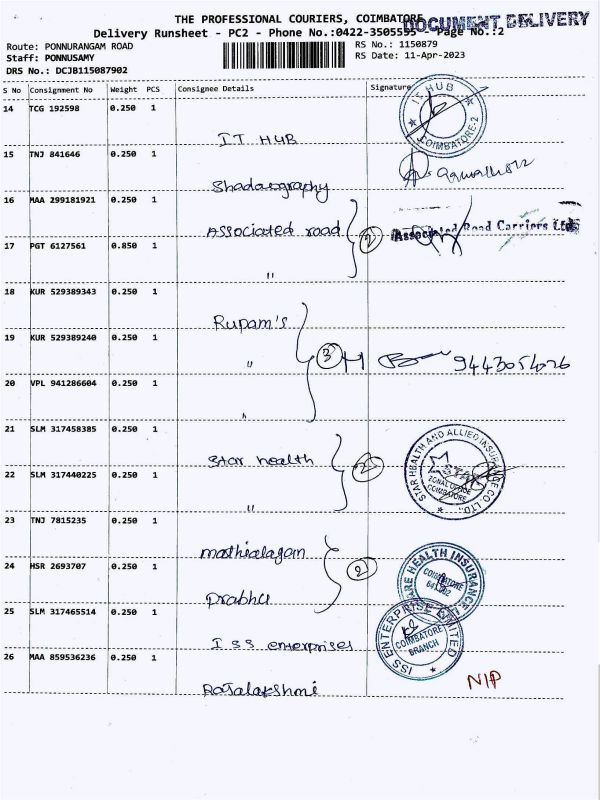 THE PROFESSIONAL COURIERS, COIMBATORE
DOCUMENT DELIVERY
Delivery Runsheet - PC2 - Phone No.:0422-3505555 Page No.:2
Route: PONNURANGAM ROAD
RS No.: 1150879
Staff: PONNUSAMY
RS Date: 11-Apr-2023
DRS No.: DCJB115087902
S No Consignment No Weight PCS Consignee Details Signature
14 TCG 192598 0.250 1
IT HUB
IT HUB COIMBATORE-2
15 TNJ 841646 0.250 1
16 MAA 299181921 0.250 1
Associated road
2
Associated Road Carriers Ltd
17 PGT 6127561 0.850 1
"
18 KUR 529389343 0.250 1
Rupam's
19 KUR 529389240 0.250 1
"
3
9443054026
20 VPL 941286604 0.250 1
"
21 SLM 317458385 0.250 1
Star health
2
STAR HEALTH AND ALLIED INSURANCE CO. LTD.
STAR
ZONAL OFFICE
COIMBATORE
22 SLM 317440225 0.250 1
"
23 TNJ 7815235 0.250 1
mathialagan
24 HSR 2693707 0.250 1
Prabhu
2
HEALTH INSURANCE
COIMBATORE
25 SLM 317465514 0.250 1
ISS enterprises
ISS ENTERPRISE LIMITED
COIMBATORE
BRANCH
26 MAA 859536236 0.250 1
Rajalakshmi
NIP